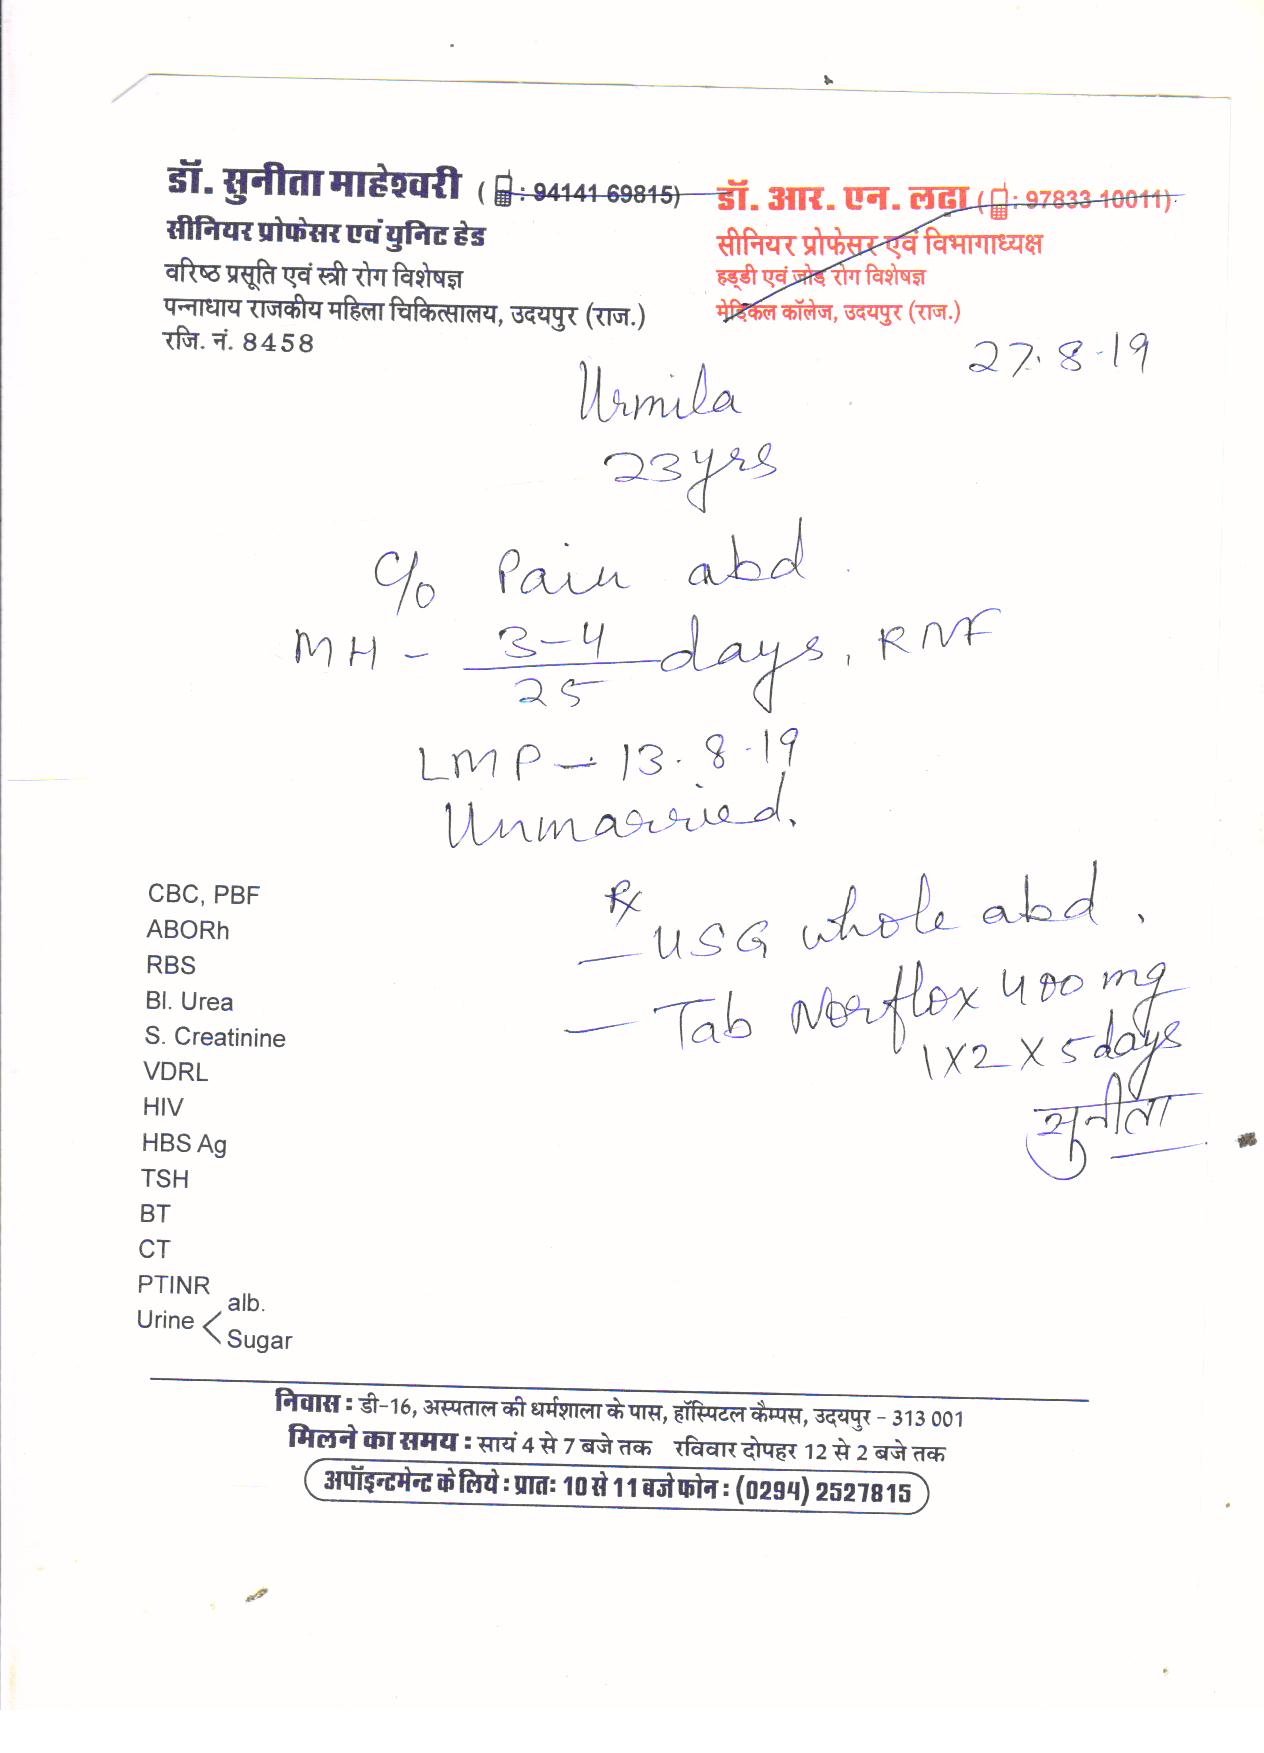 डॉ. सुनीता माहेश्वरी ( : 94141 69815)
सीनियर प्रोफेसर एवं युनिट हेड
वरिष्ठ प्रसूति एवं स्त्री रोग विशेषज्ञ
पन्नाधाय राजकीय महिला चिकित्सालय, उदयपुर (राज.)
रजि. नं. 8458
डॉ. आर. एन. लढा ( : 97833 10011)
सीनियर प्रोफेसर एवं विभागाध्यक्ष
हड्डी एवं जोड़ रोग विशेषज्ञ
मेडिकल कॉलेज, उदयपुर (राज.)
27.8.19
Urmila
23yrs
C/o Pain abd.
MH - 3-4/25 days, RNF
LMP - 13.8.19
Unmarried.
Rx
- USG whole abd.
- Tab Norflox 400 mg
1X2 X 5 days
सुनीता
CBC, PBF
ABORh
RBS
Bl. Urea
S. Creatinine
VDRL
HIV
HBS Ag
TSH
BT
CT
PTINR
Urine < alb.
Sugar
निवास : डी-16, अस्पताल की धर्मशाला के पास, हॉस्पिटल कैम्पस, उदयपुर - 313 001
मिलने का समय : सायं 4 से 7 बजे तक रविवार दोपहर 12 से 2 बजे तक
अपॉइन्टमेन्ट के लिये : प्रातः 10 से 11 बजे फोन : (0294) 2527815